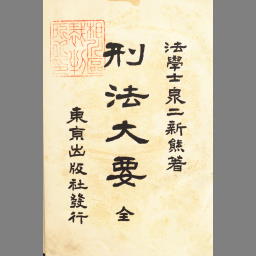 法學士泉二新熊著
刑法大要 全
東京出版社發行